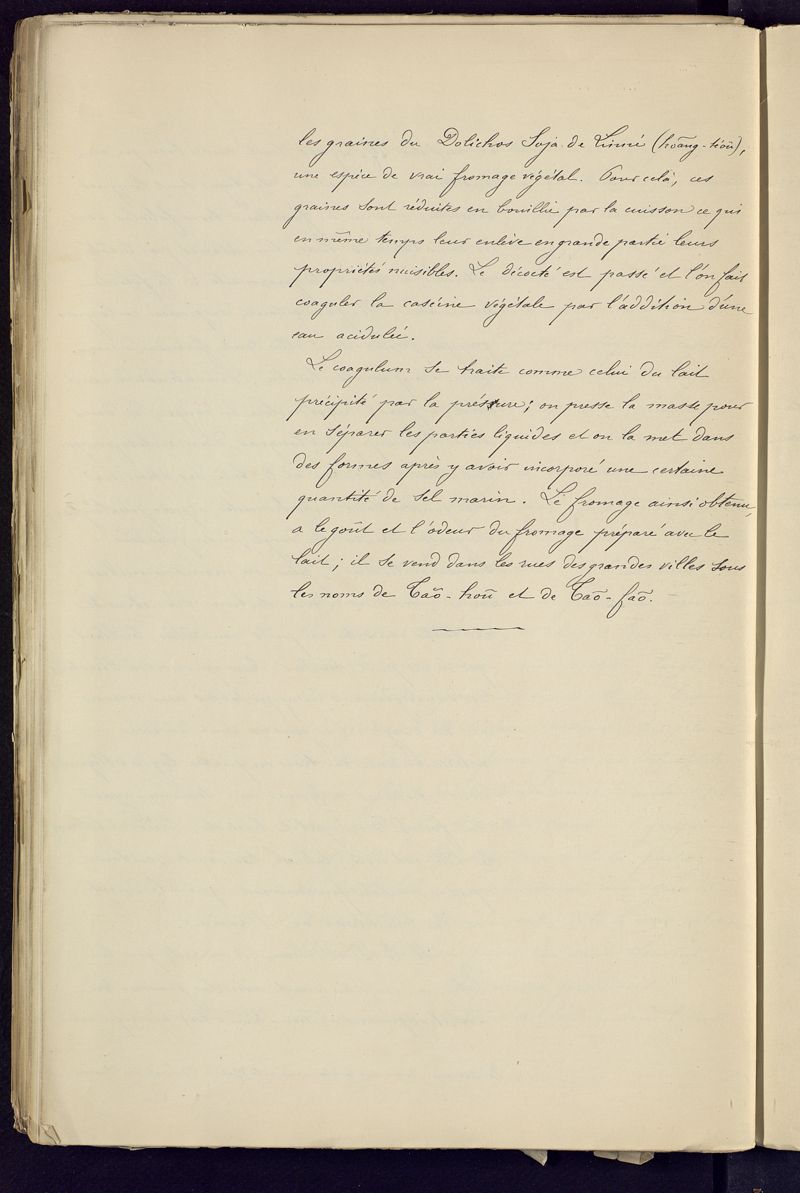 les graines du Dolichos Soja de Linné (hoâng-téou),
une espèce de vrai fromage végétal. Pour celà, ces
graines sont réduites en bouillie par la cuisson ce qui
en même temps leur enlève en grande partie leurs
propriétés nuisibles. Le décocté est passé et l'on fait
coaguler la caséine végétale par l'addition d'une
eau acidulée.
Le coagulum se traite comme celui du lait
précipité par la présure; on presse la masse pour
en séparer les parties liquides et on la met dans
des formes après y avoir incorporé une certaine
quantité de sel marin. Le fromage ainsi obtenu,
a le goût et l'odeur du fromage préparé avec le
lait; il se vend dans les rues des grandes villes sous
les noms de Taô-hoû et de Taô-faô.